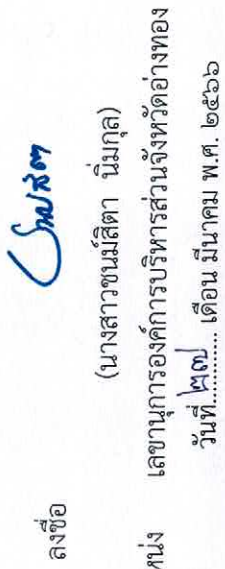 ลงชื่อ
(นางสาวชนม์สิตา นิ่มกุล)
หน่ง เลขานุการองค์การบริหารส่วนจังหวัดอ่างทอง
วันที่ ๒๗ เดือน มีนาคม พ.ศ. ๒๕๖๖